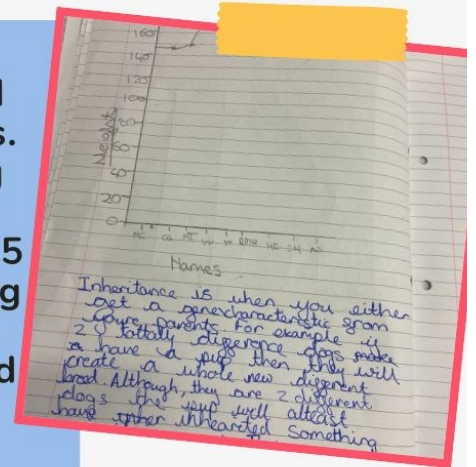 s.
5
g
d
160
140
120
100
80
60
40
20
0
Height
Names
Inheritance is when you either
get a genecharacteristic from
you're parents. For example if
2 totally difference dogs make
have a pup then they will
create a whole new different
bread. Although, they are 2 different
dogs the pup will atleast
have unhearted Something